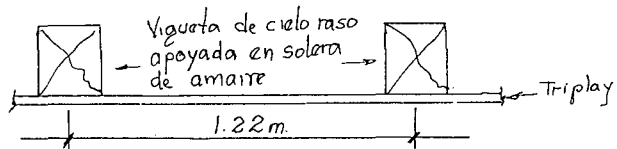 Vigueta de cielo raso
apoyada en solera
de amarre
Triplay
1.22 m.